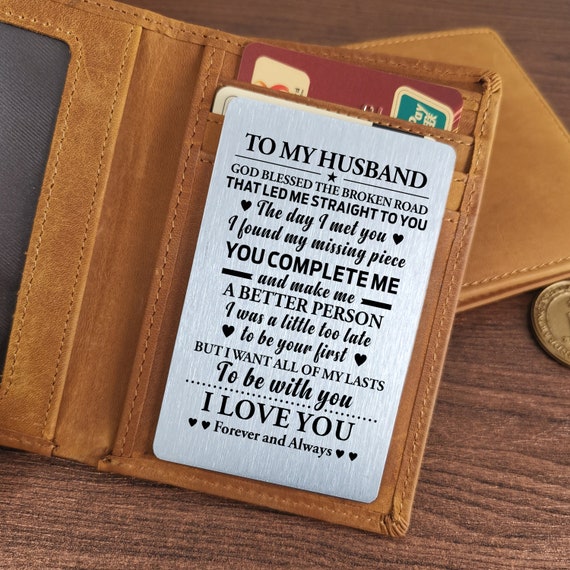 TO MY HUSBAND
GOD BLESSED THE BROKEN ROAD
THAT LED ME STRAIGHT TO YOU
The day I met you
I found my missing piece
YOU COMPLETE ME
and make me
A BETTER PERSON
I was a little too late
to be your first
BUT I WANT ALL OF MY LASTS
To be with you
I LOVE YOU
Forever and Always